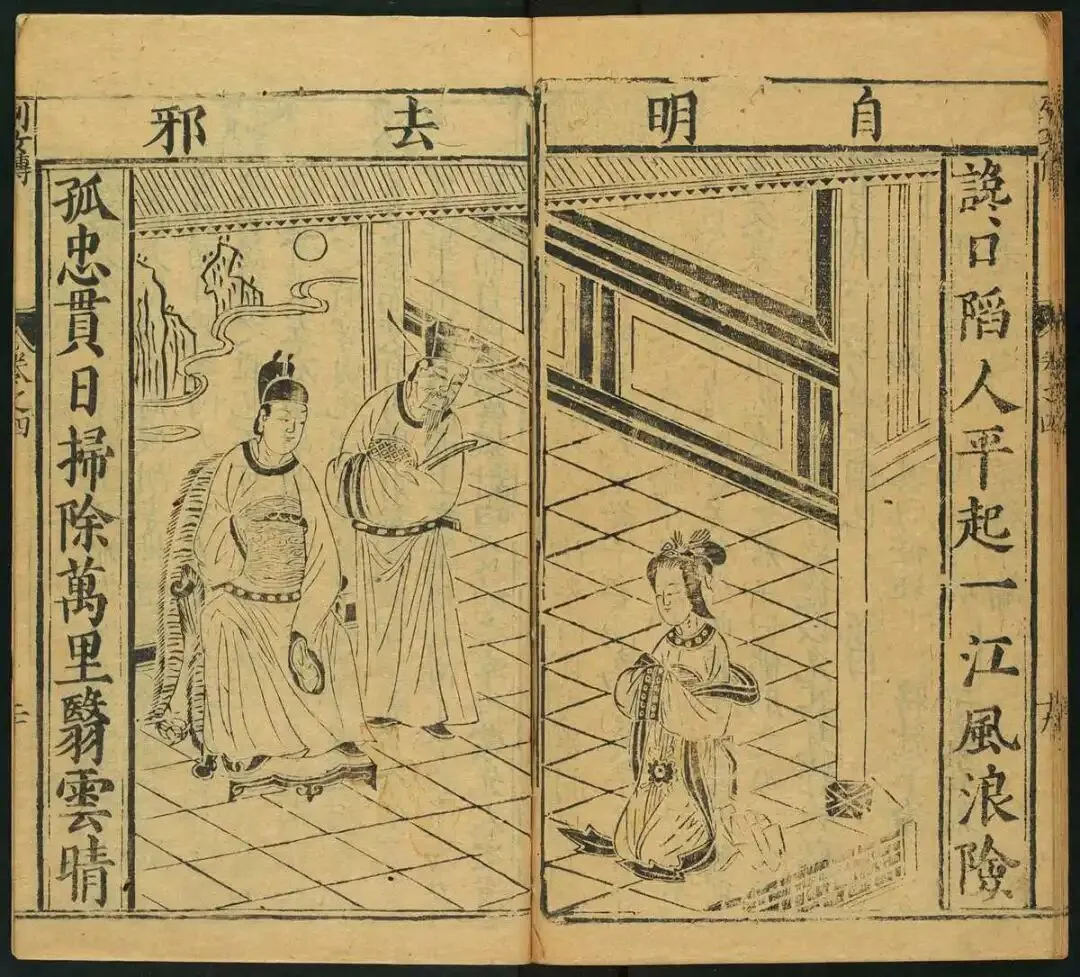 自明去邪
讒口陷人平起一江風浪險
孤忠貫日掃除萬里翳雲晴
列女傳
卷之四